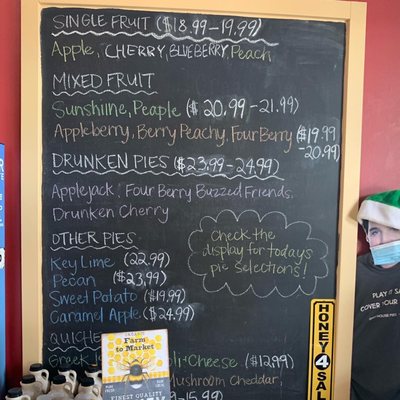 SINGLE FRUIT ($18.99-19.99)
Apple, CHERRY, BLUEBERRY, Peach
MIXED FRUIT
Sunshine, Peaple ($20.99-21.99)
Appleberry, Berry Peachy, Four Berry ($19.99
-20.99)
DRUNKEN PIES ($23.99-24.99)
Applejack, Four Berry Buzzed Friends,
Drunken Cherry
OTHER PIES
Key Lime (22.99)
Pecan ($23.99)
Sweet Potato ($19.99)
Caramel Apple ($24.99
Check the
display for todays
pie selections!
QUICHE
Greek
+Cheese ($12.99)
Mushroom Cheddar,
-15.99)
Farm
to Market
FINEST QUALITY
HONEY 4 SAL
PLAY
COVER